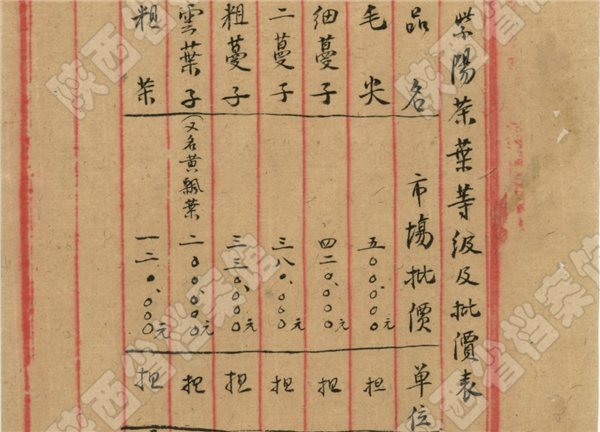 紫陽茶葉等級及批價表
品名 市場批價 單位
毛尖 五〇〇.〇〇〇元 担
細蔓子 四二〇.〇〇〇元 担
二蔓子 三八〇.〇〇〇元 担
粗蔓子 三三〇.〇〇〇元 担
雲葉子(又名黄飄葉) 二〇〇.〇〇〇元 担
粗茶 一二〇.〇〇〇元 担
陕西省档案馆
陕西省档案馆